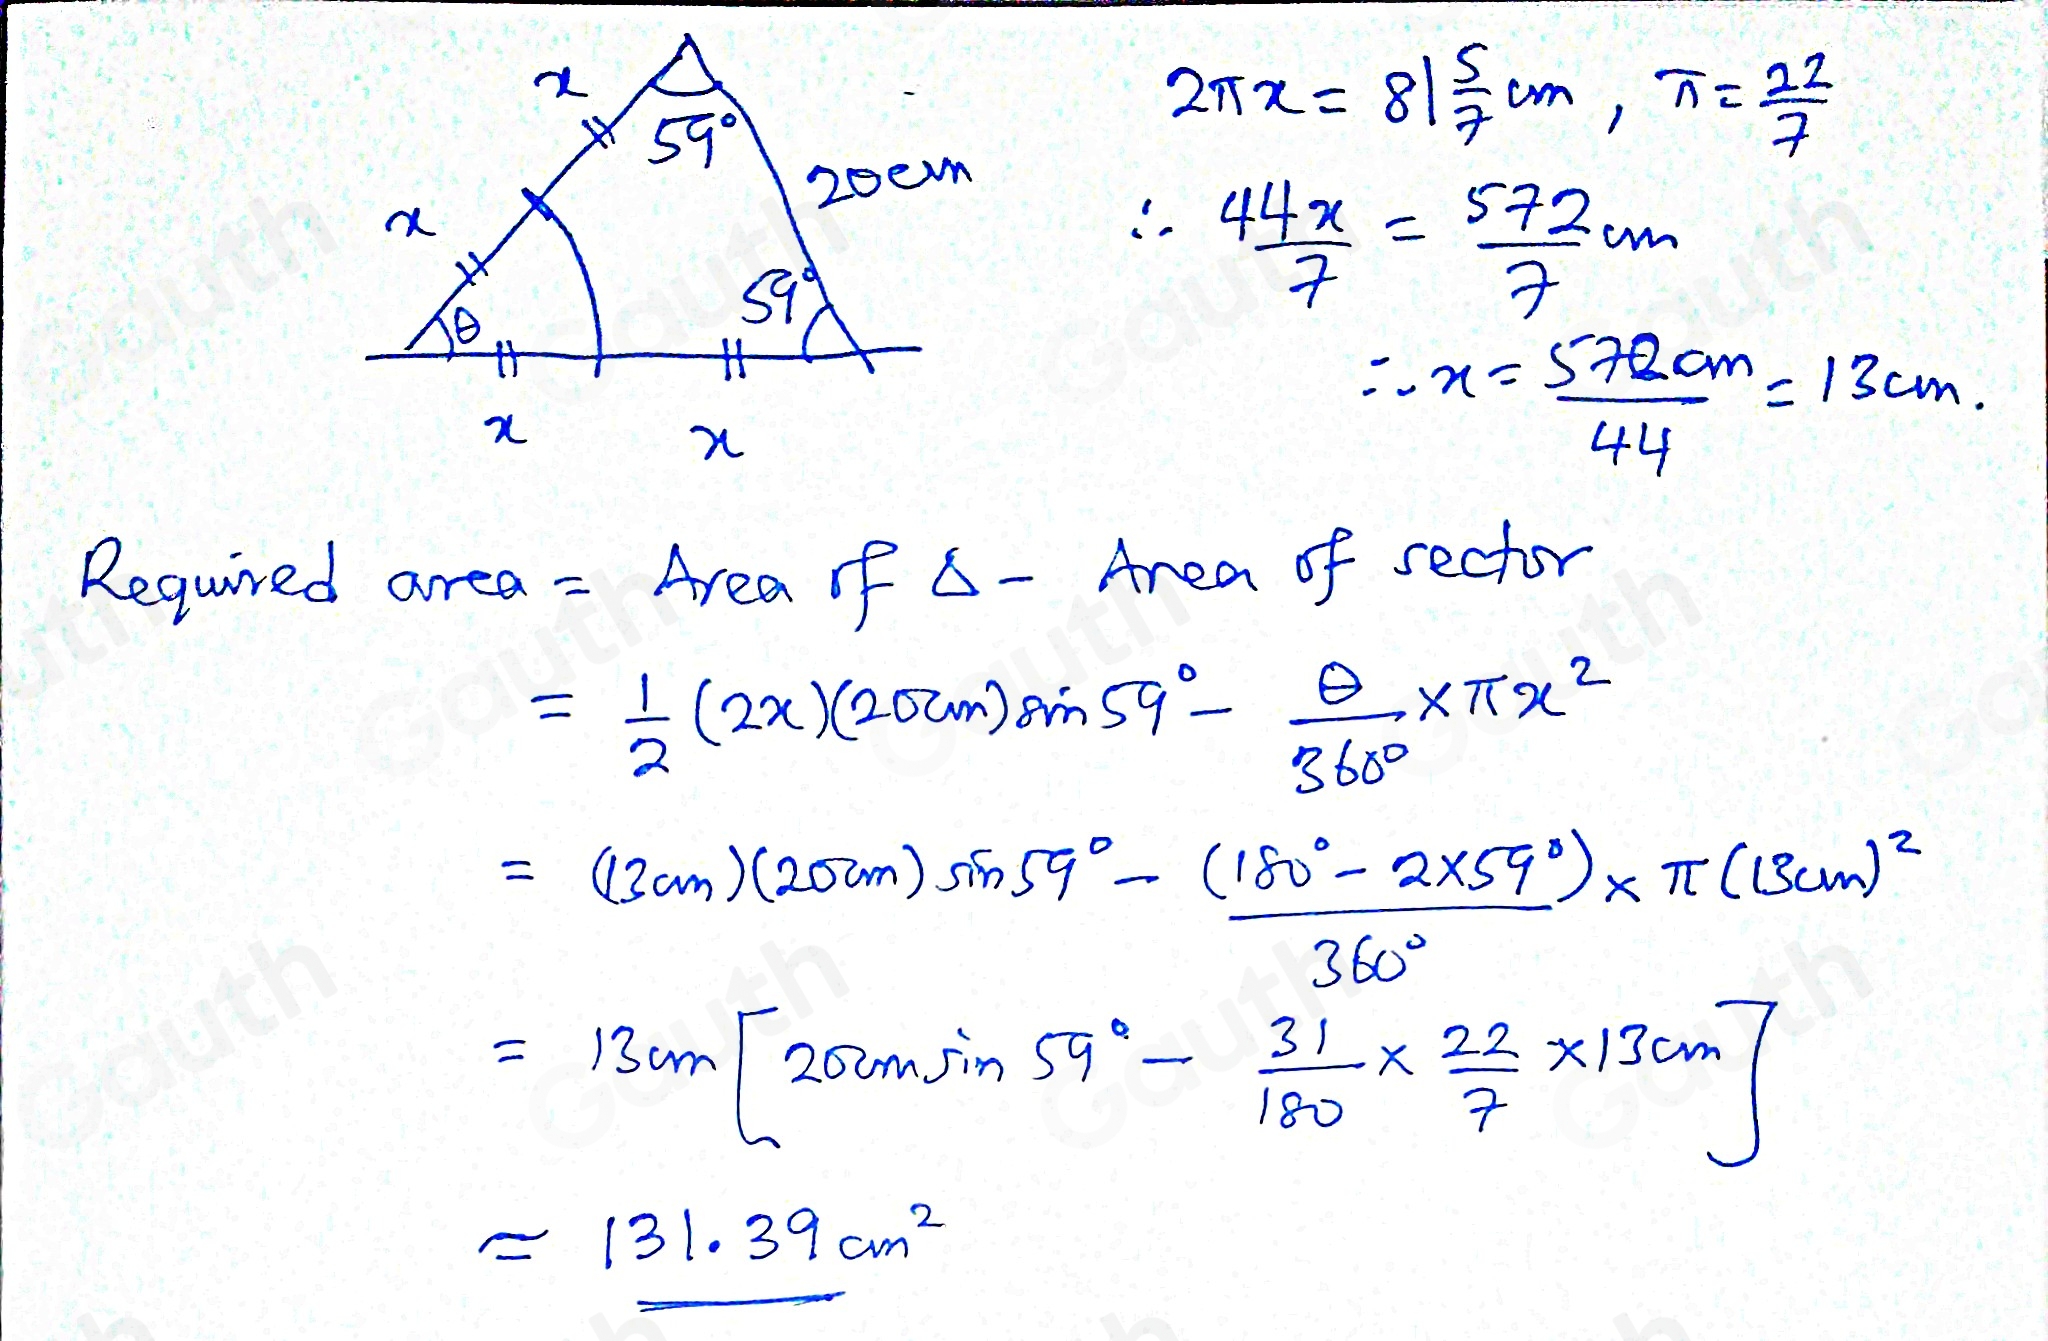 x
59°
20cm
x
θ
59°
x
x
2πx = 81 5/7 cm, π = 22/7
∴ 44x/7 = 572/7 cm
∴ x = 572cm/44 = 13cm.
Required area = Area of Δ - Area of sector
= 1/2 (2x)(20cm) sin 59° - θ/360° × πx²
= (13cm)(20cm) sin 59° - (180° - 2×59°)/360° × π(13cm)²
= 13cm [20cm sin 59° - 31/180 × 22/7 × 13cm]
≃ 131.39cm²
Gauth